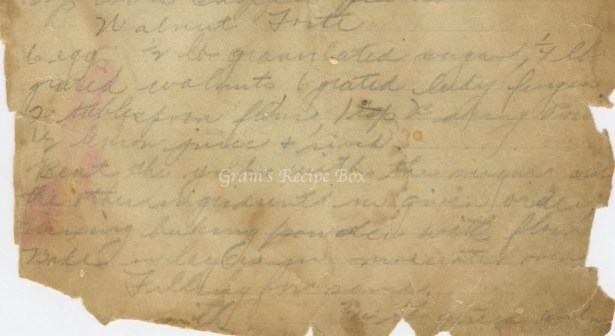 Walnut Torte
6 egg ½ lb granulated sugar, ¼ lb
grated walnuts 6 grated lady fingers
2 tablespoon flour, 1 tsp Baking Pow
½ lemon juice + rind.
Beat the yolks with the sugar add
the other ingredients in given order
mixing baking powder with flour
Bake in layers in moderate oven
Filling for same
with
Gram's Recipe Box